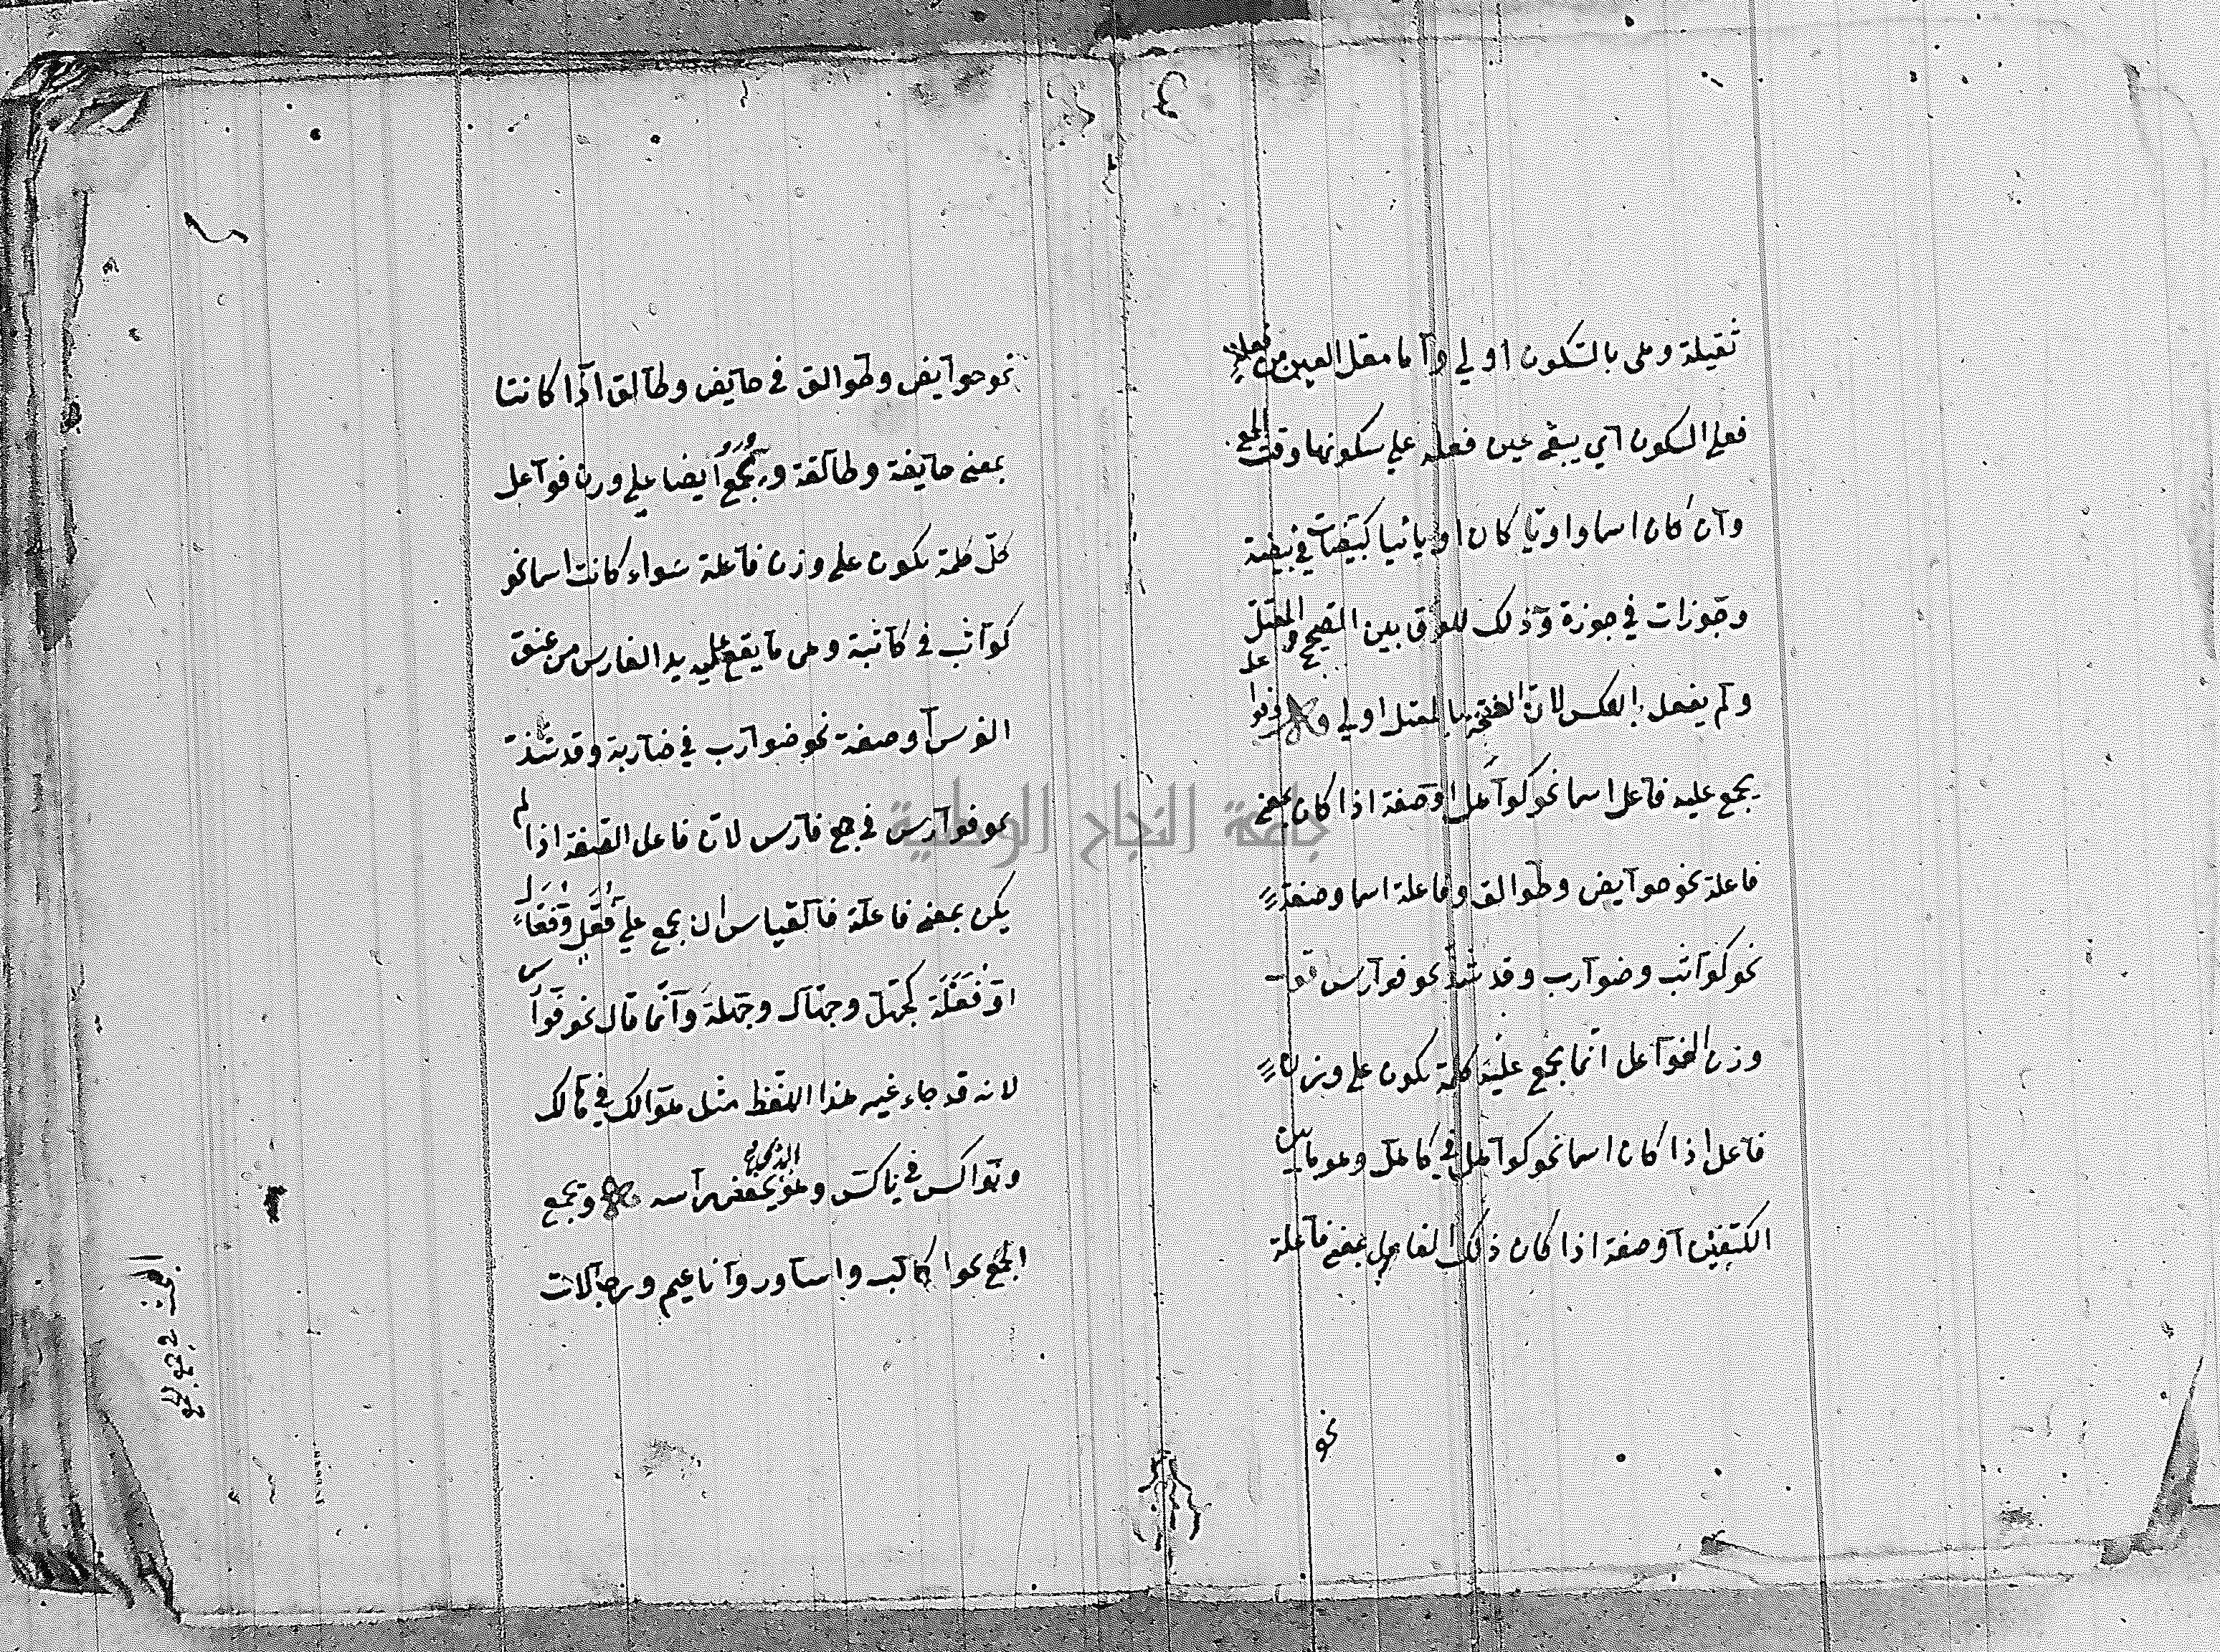 ثقيلة وهى بالسكون اولي واما معتل العين من فعلة
فعلي السكون اي يبقي عين فعلة علي سكونها وقت الجمع
وان كان اسما واويا كان او يائيا كبيضات في بيضة
وجوزات في جوزة وذلك للفرق بين الصحيح والمعتل
ولم يفعل بالعكس لان الفتحة بالمعتل اولي وفواعل
يجمع عليه فاعل اسما نحو كواهل او صفة اذا كان بمعني
فاعلة نحو حوايض وطوالق وفاعلة اسما وصفة
نحو كواثب وضوارب وقد شذ نحو فوارس
وزن الفواعل انما يجمع عليه كلمة تكون علي وزن
فاعل اذا كان اسما نحو كواهل في كاهل وهو ما بين
الكتفين او صفة اذا كان ذلك الفاعل بمعني فاعلة
نحو
نحو حوايض وطوالق في حايض وطالق اذا كانتا
بمعني حايضة وطالقة ويجمع ايضا علي وزن فواعل
كل كلمة تكون علي وزن فاعلة سواء كانت اسما نحو
كواثب في كاثبة وهى ما يقع عليه يد الفارس من عنق
الفرس او صفة نحو ضوارب في ضاربة وقد شذت
نحو فوارس في جمع فارس لان فاعل الصفة اذا لم
يكن بمعني فاعلة فالقياس ان يجمع علي فعل وفعال
او فعلة كجهل وجهال وجهلة وانما قال نحو فوارس
لانه قد جاء غير هذا اللفظ مثل هوالك في هالك
ونواكس في ناكس وهو الذي يخفض رأسه ويجمع
الجمع نحوا كالب واساور واناعيم ورجالات
جامعة النجاح الوطنية